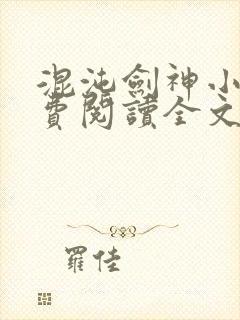 混沌劍神小
費閱讀全文
羅佳